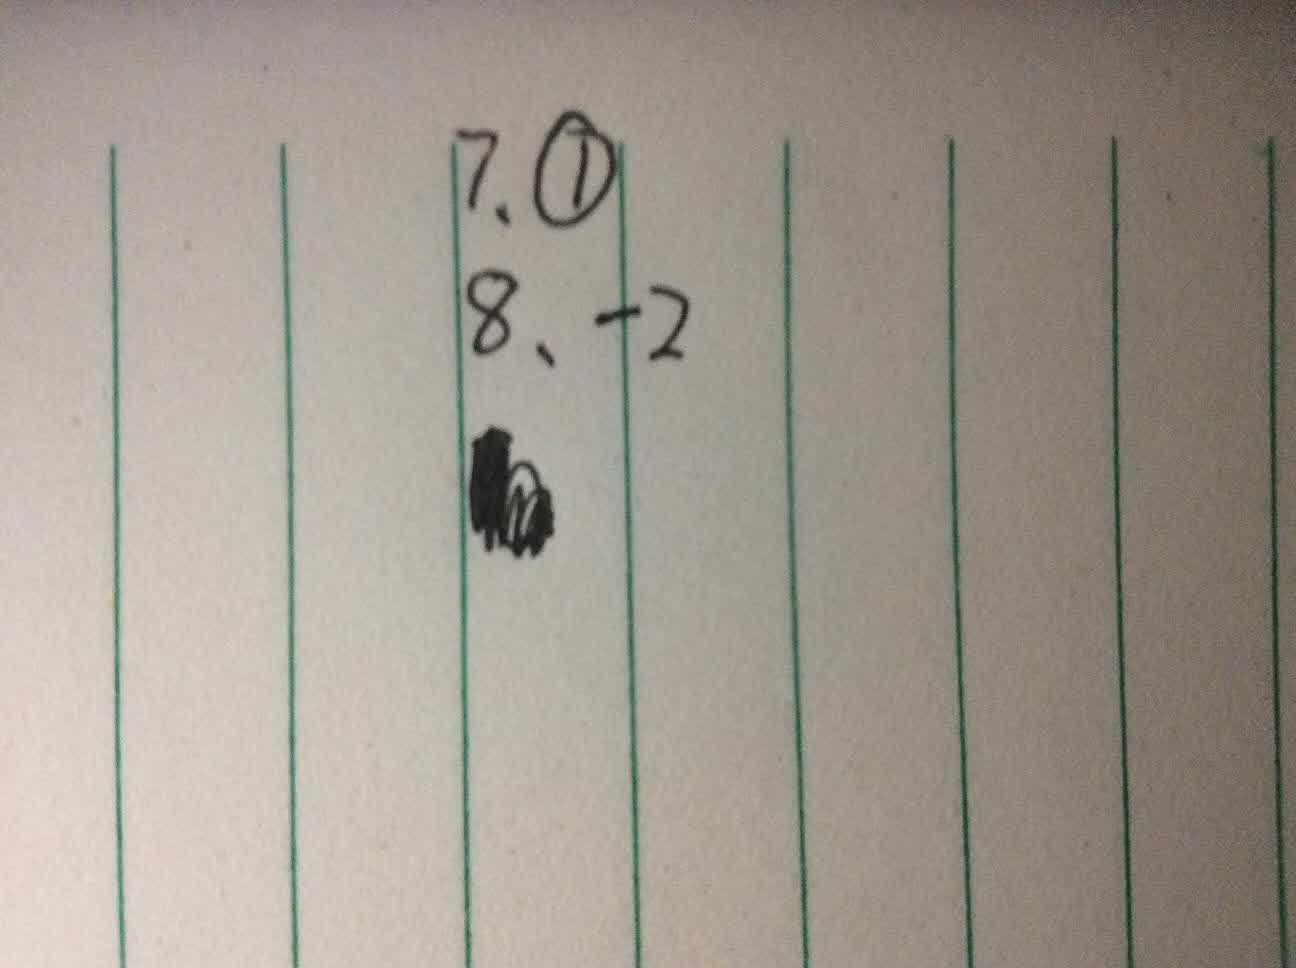 7、①
8、-2